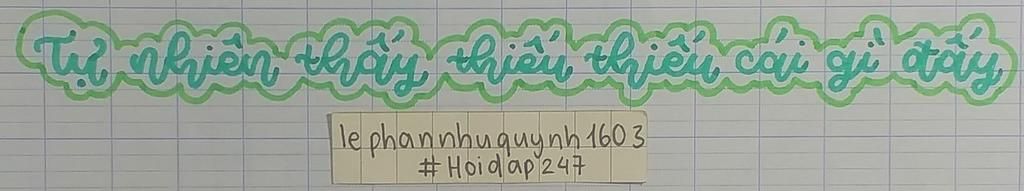 Tự nhiên thấy thiếu thiếu cái gì đấy
lephannhuquynh1603
#Hoidap247